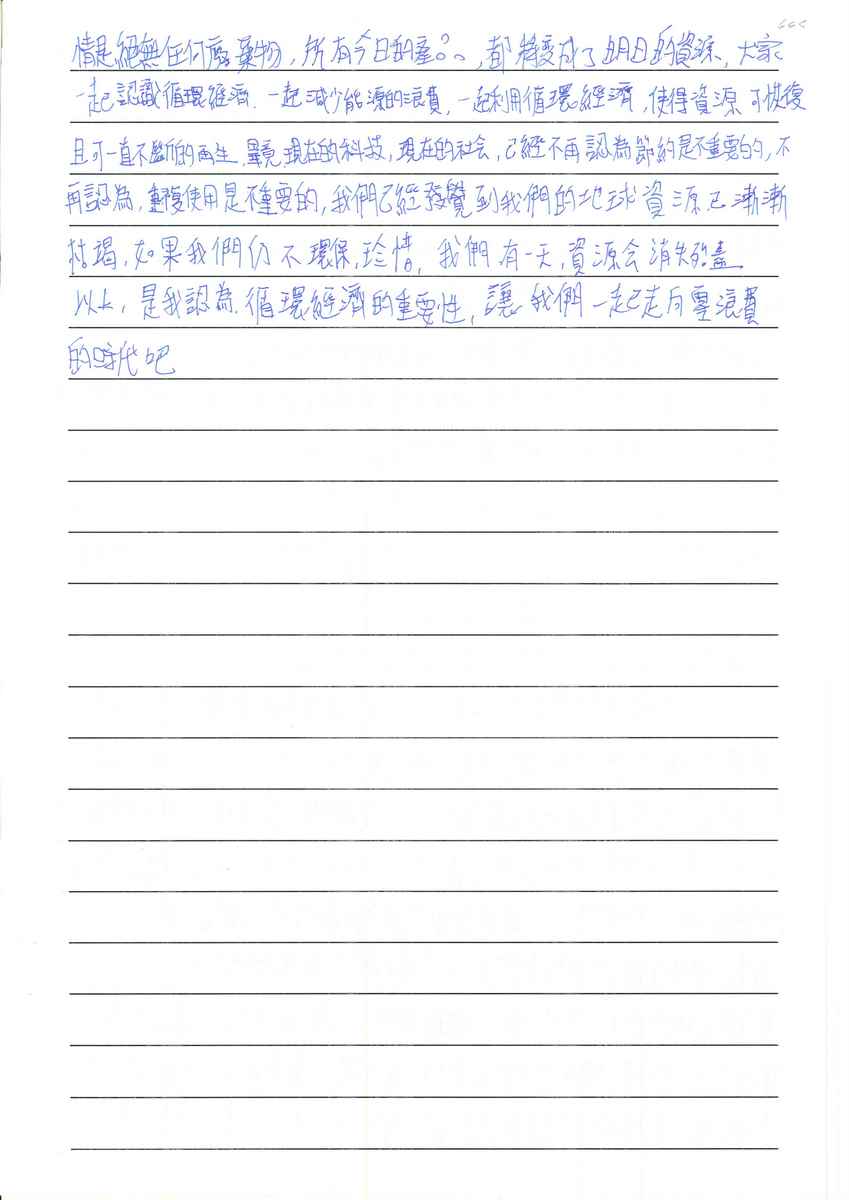 情是絕無任何廢棄物，所有今日的產品，都將變成了明日的資源，大家
一起認識循環經濟，一起減少能源的浪費，一起利用循環經濟，使得資源可恢復
且可一直不斷的再生，畢竟現在的科技，現在的社会，已經不再認為節約是不重要的，不
再認為，重複使用是不重要的，我們已經發覺到我們的地球資源已漸漸
枯竭，如果我們仍不環保，珍惜，我們有一天，資源会消失殆盡
以上，是我認為循環經濟的重要性，讓我們一起走向零浪費
的時代吧